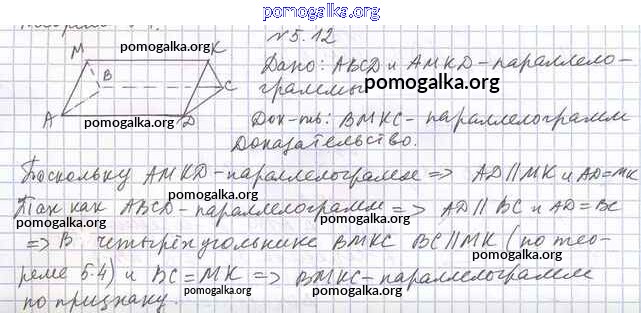 pomogalka.org
№5.12
M K pomogalka.org
B C
A D
pomogalka.org
Дано: ABCD и AMKD - параллело-
граммы pomogalka.org
Док-ть: BMKC - параллелограмм
Доказательство.
Поскольку AMKD - параллелограмм => AD || MK и AD = MK
pomogalka.org
Так как ABCD - параллелограмм => AD || BC и AD = BC
pomogalka.org
=> В четырёхугольнике BMKC BC || MK (по тео-
pomogalka.org
реме 5.4) и BC = MK => BMKC - параллелограмм
по признаку. pomogalka.org pomogalka.org